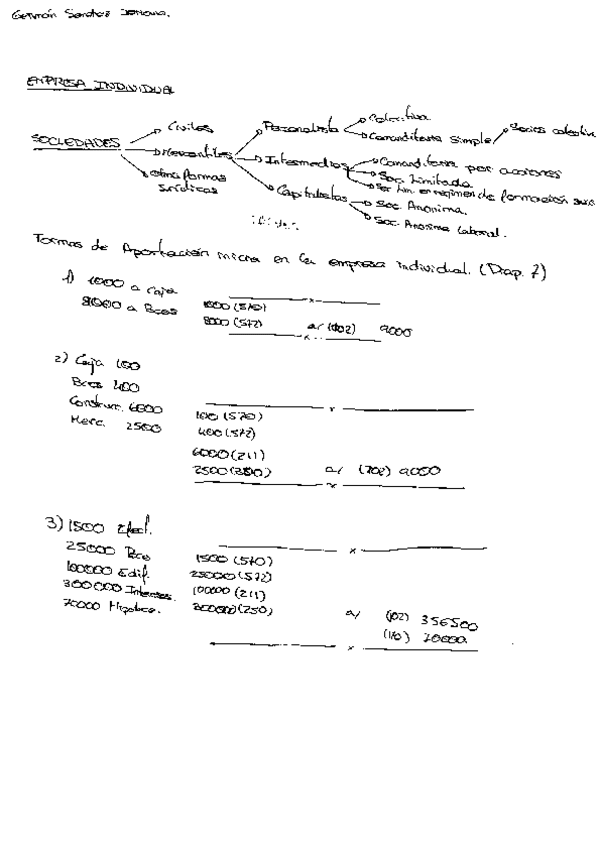 Germán
EMPRESA INDIVIDUAL
SOCIEDADES
Civiles
Mercantiles
Otras formas jurídicas
Personalista
Intermedios
Capitalistas
Colectiva
Comanditaria Simple
Socios colectivos
Comanditaria por acciones
Soc. Limitada
Soc Lim. en regimen de formación
Soc. Anonima.
Soc. Anonima Laboral.
Formas de Aportación in en la empresa individual. (Diap. 7)
1) 1000 a Caja
8000 a Bcos
1000 (570)
8000 (572) a/ (102) 9000
2) Caja 100
Bcos 400
Construc. 6000
Merc. 2500
100 (570)
400 (572)
6000 (211)
2500 (300) a/ (102) 9000
3) 1500 Efect.
25000 Bco
100000 Edif.
300000
70000 Hipoteca.
1500 (570)
25000 (572)
100000 (211)
300000 (250) a/ (102) 356500
(170) 70000